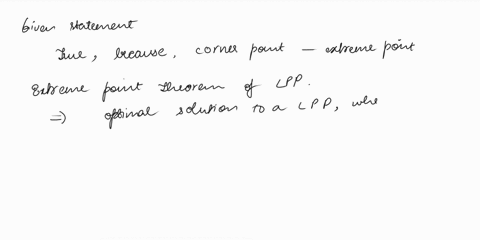 Given statement
True, because, corner point – extreme point
Extreme point theorem of LPP.
⇒ optimal solution to a LPP, whe